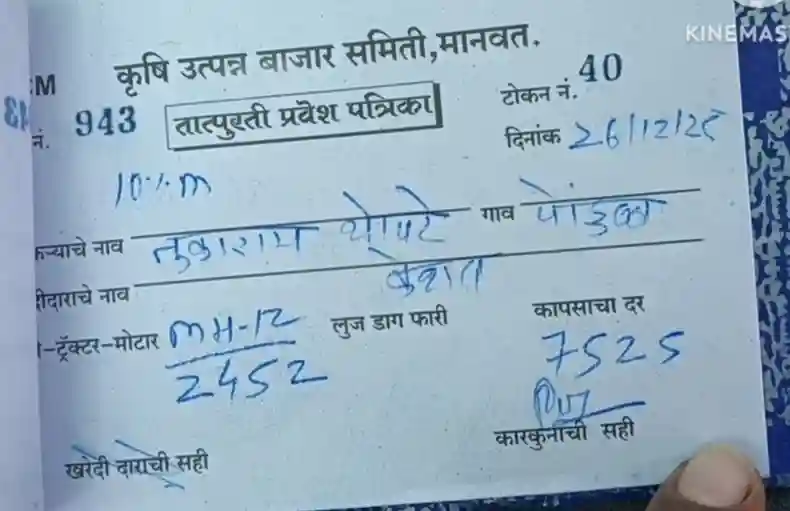 KINEMAS
M कृषि उत्पन्न बाजार समिती,मानवत.
नं. 943 तात्पुरती प्रवेश पत्रिका टोकन नं. 40
दिनांक 26/12/25
10% m
ऱ्याचे नाव तुकाराम थोपटे गाव
ीदाराचे नाव केशव
-ट्रॅक्टर-मोटार MH-12 लुज डाग फारी कापसाचा दर
2452 7525
खरेदी दाराची सही कारकुनाची सही